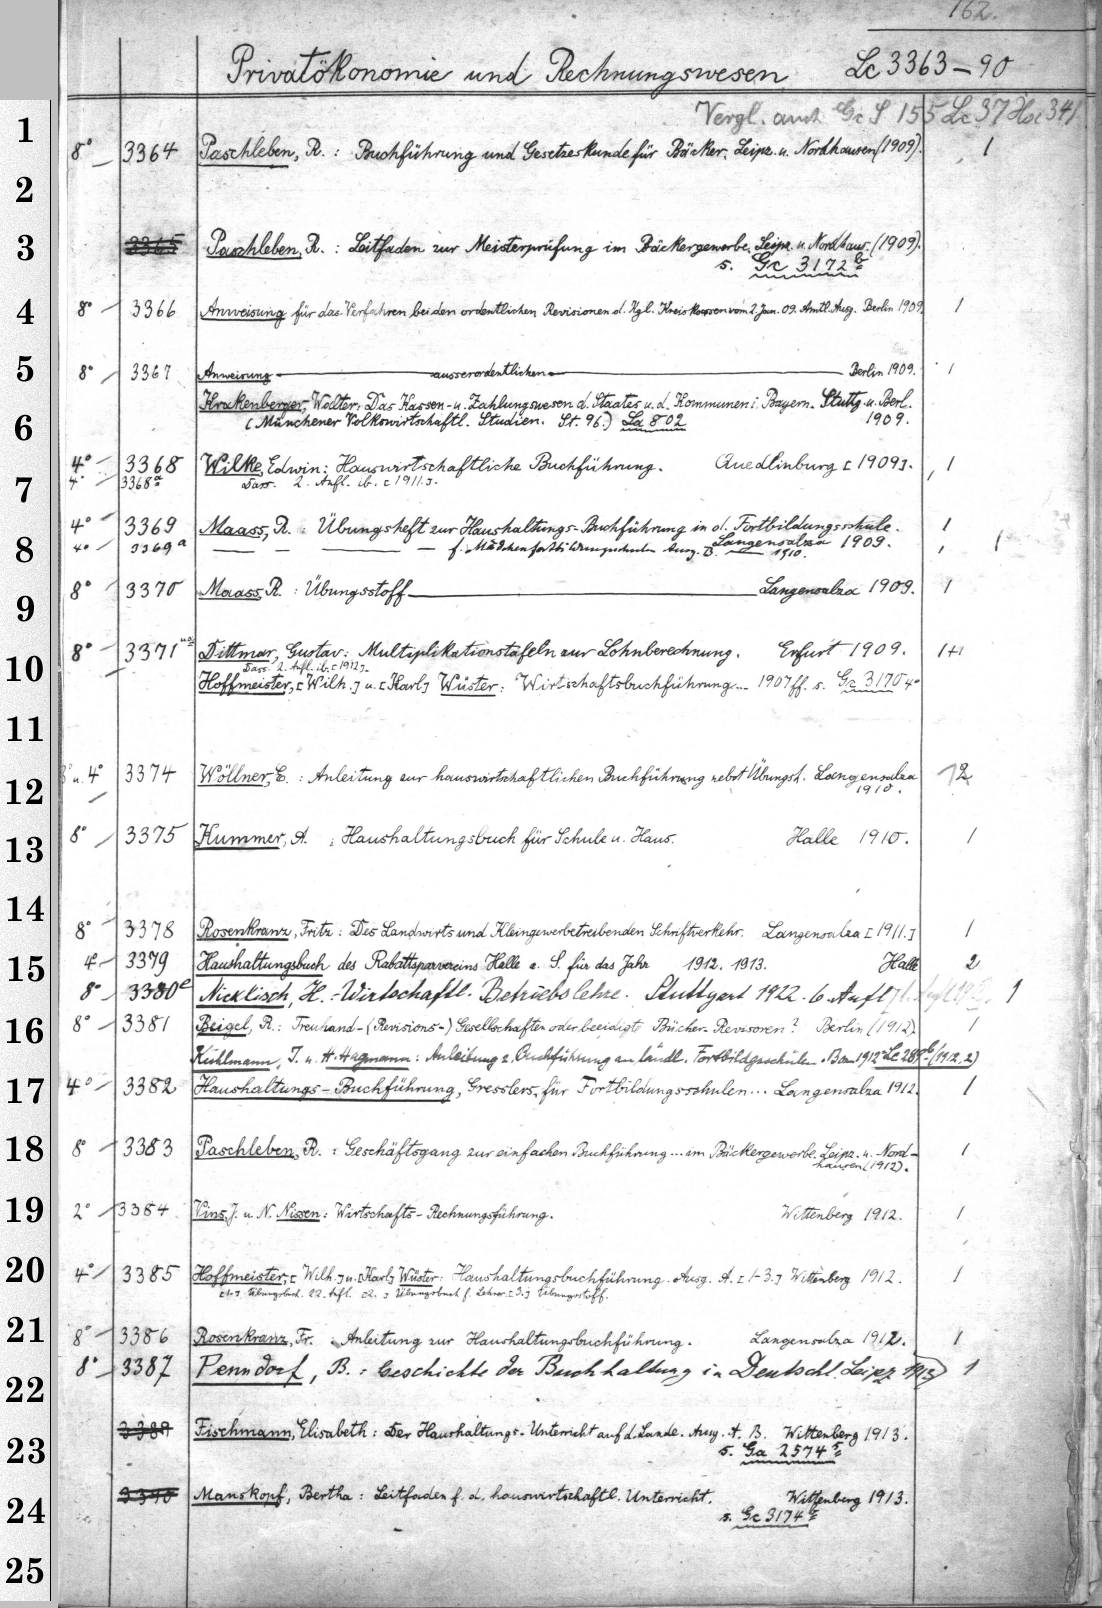 162.
Privatökonomie und Rechnungswesen Lc 3363-90
Vergl. auch Gc S 155 Lc 37
1
8° 3364 Paschleben, R. : Buchführung und Gesetzeskunde für Bäcker. Leipz. u. Nordhausen (1909). 1
2
3 3365 Paschleben, R. : Leitfaden zur Meisterprüfung im Bäckergewerbe. Leipz. u. Nordhaus. (1909).
s. Gc 3172 b
4 8° 3366 Anweisung für das Verfahren bei den ordentlichen Revisionen d. Kgl. Kreiskassen vom 2. Jan. 09. Amtl. Ausg. Berlin 1909. 1
5 8° 3367 Anweisung — ausserordentlichen — Berlin 1909. 1
Krakenberger, Walter: Das Kassen- u. Zahlungswesen d. Staates u. d. Kommunen i. Bayern. Stuttg. u. Berl.
6 (Münchener Volkswirtschaftl. Studien. St. 96.) La 802 1909.
4° 3368 Wilke, Edwin: Hauswirtschaftliche Buchführung. Quedlinburg [1909]. 1
7 4° 3368a Dass. 2. Aufl. ib. [1911].
4° 3369 Maass, R. : Übungsheft zur Haushaltungs-Buchführung in d. Fortbildungsschule. 1
Langensalza 1909.
8 4° 3369a — — — — f. Mädchenfortbildungsschulen Ausg. B. — 1910. 1
9 8° 3370 Maass, R. : Übungsstoff — Langensalza 1909. 1
8° 3371 u.a Dittmar, Gustav: Multiplikationstafeln zur Lohnberechnung. Erfurt 1909. 1+1
10 Dass. 2. Aufl. ib. [1912].
Hoffmeister, [Wilh.] u. [Karl] Wüster: Wirtschaftsbuchführung... 1907 ff. s. Gc 3170 4°
11
12 8° u. 4° 3374 Wöllner, E. : Anleitung zur hauswirtschaftlichen Buchführung nebst Übungsh. Langensalza 2
1910.
13 8° 3375 Kummer, A. : Haushaltungsbuch für Schule u. Haus. Halle 1910. 1
14
8° 3378 Rosenkranz, Fritz : Des Landwirts und Kleingewerbetreibenden Schriftverkehr. Langensalza [1911.] 1
15 4° 3379 Haushaltungsbuch des Rabattsparvereins Halle a. S. für das Jahr 1912. 1913. Halle 2
8° 3380e Nicklisch, H. - Wirtschaftl. Betriebslehre. Stuttgart 1922. 6. Aufl. 1
16 8° 3381 Beigel, R.: Treuhand-(Revisions-) Gesellschaften oder beeidigt Bücher-Revisoren? Berlin (1912). 1
Kühlmann, J. u. H. Hagmann: Anleitung z. Buchführung an ländl. Fortbildgsschulen. Bonn 1912 Lc (1912, 2)
17 4° 3382 Haushaltungs-Buchführung, Gresslers, für Fortbildungsschulen... Langensalza 1912. 1
18 8° 3383 Paschleben, R. : Geschäftsgang zur einfachen Buchführung... im Bäckergewerbe. Leipz. u. Nord-
hausen (1912). 1
19 2° 3384 Vins, J. u. N. Nissen: Wirtschafts-Rechnungsführung. Wittenberg 1912. 1
20 4° 3385 Hoffmeister, [Wilh.] u. [Karl] Wüster: Haushaltungsbuchführung. Ausg. A. [1-3.] Wittenberg 1912. 1
[1.] Übungsbuch. 22. Aufl. [2.] Übungsbuch f. Lehrer. [3.] Übungsstoff.
21 8° 3386 Rosenkranz, Fr. : Anleitung zur Haushaltungsbuchführung. Langensalza 1912. 1
22 8° 3387 Penndorf, B. : Geschichte der Buchhaltung in Deutschl. Leipz. 1913 1
23 3389 Fischmann, Elisabeth : Der Haushaltungs-Unterricht auf d. Lande. Ausg. A. B. Wittenberg 1913.
s. Ga 2574
24 3390 Manskopf, Bertha : Leitfaden f. d. hauswirtschaftl. Unterricht. Wittenberg 1913.
s. Gc 3174
25